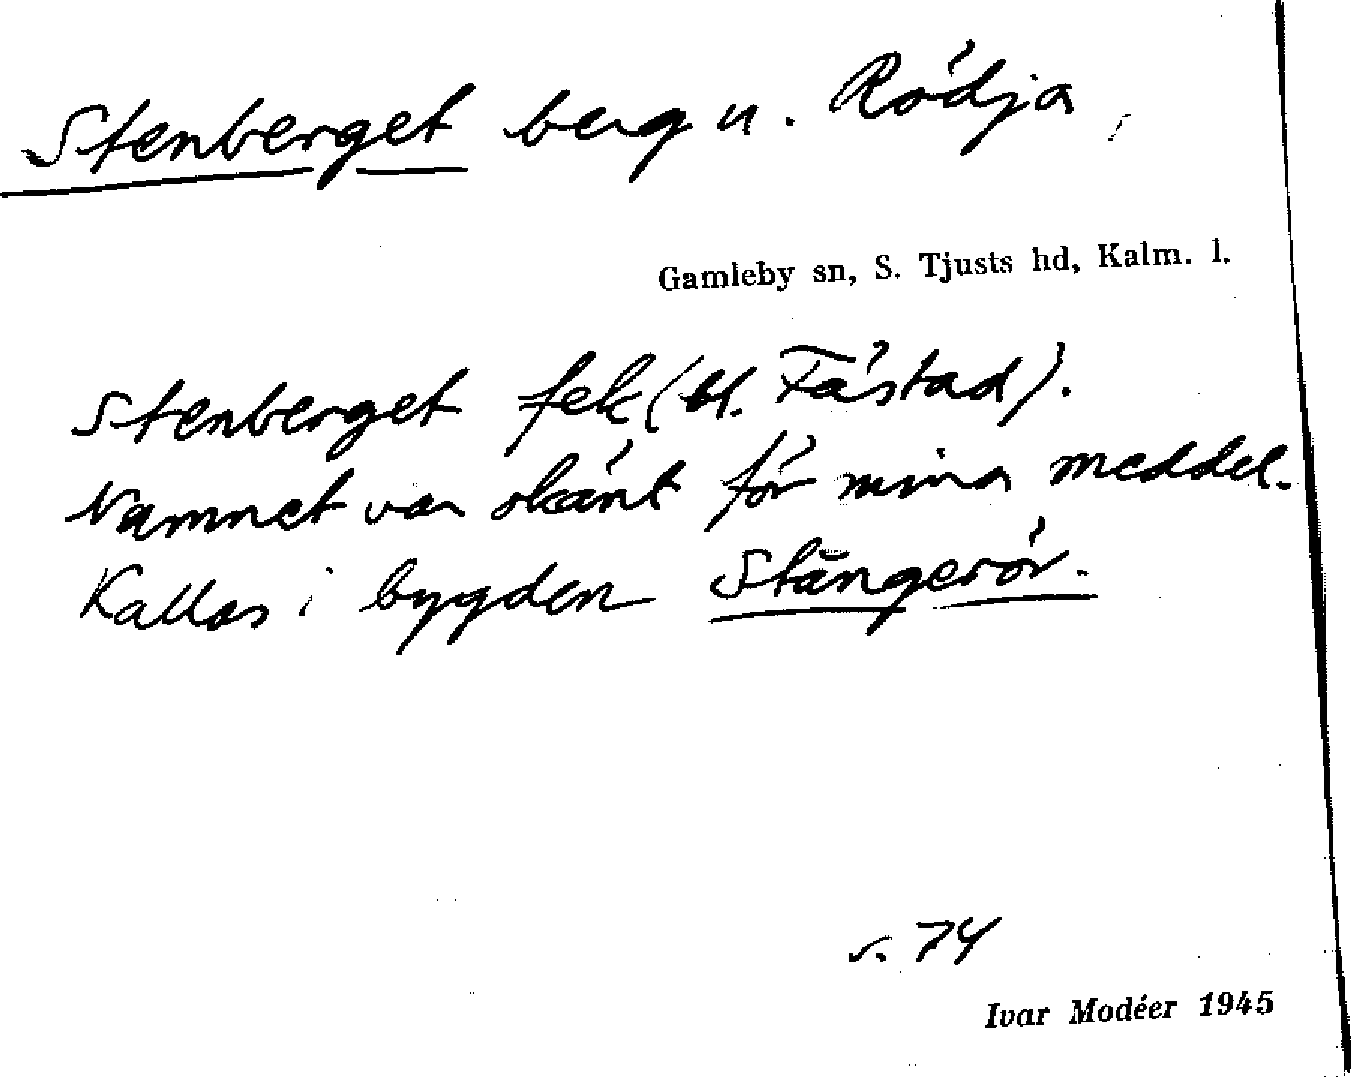 Stenberget berg u. Rödja,
Gamleby sn, S. Tjusts hd, Kalm. l.
Stenberget fek (bl. Fästad).
Namnet var okänt för mina meddel.
Kallas i bygden Stångerör.
s. 74
Ivar Modéer 1945